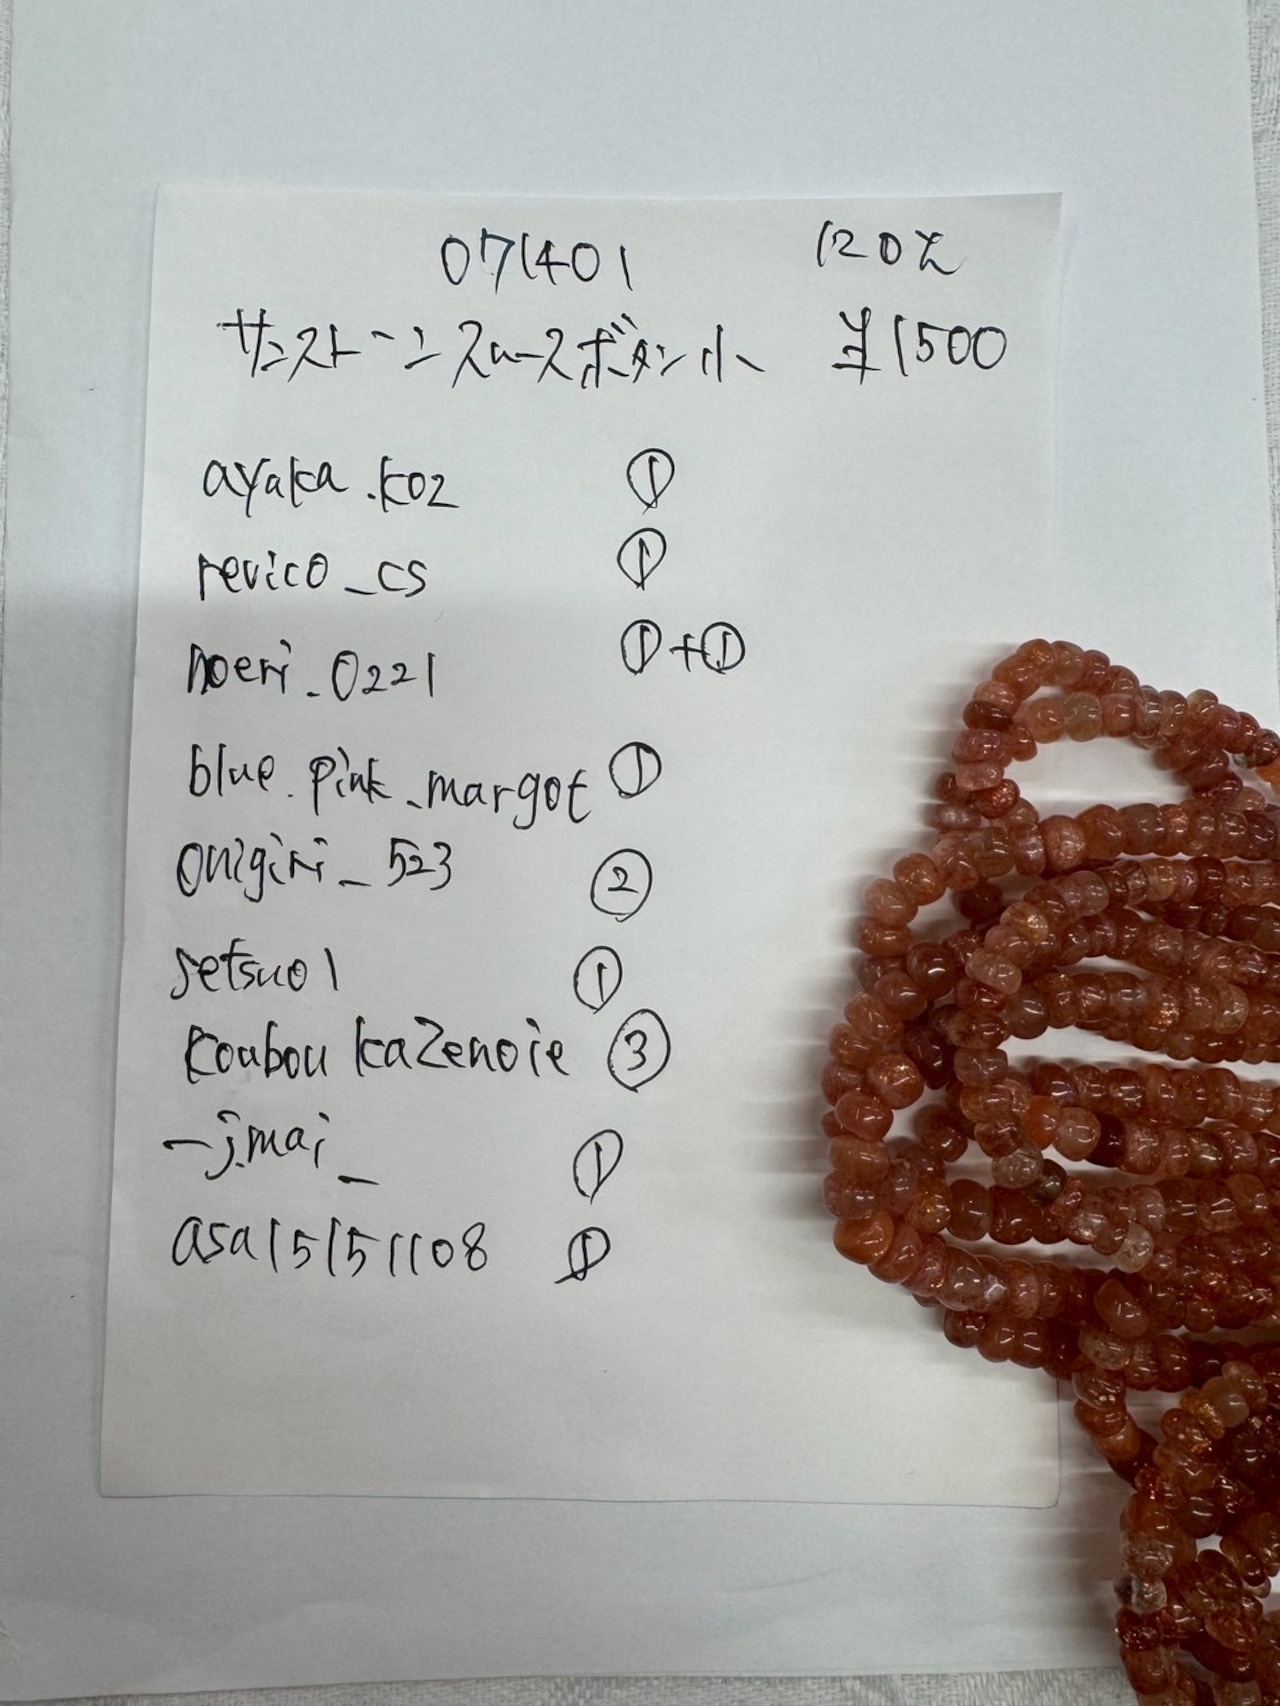 071401 120pc
サンストーンスムースボタン小 ¥1500
ayaka.k02 ①
revico_cs ①
noeri_0221 ①+①
blue.pink_margot ①
onigiri_523 ②
setsuo1 ①
koubou kazenoie ③
_j.mai_ ①
asa15151108 ①